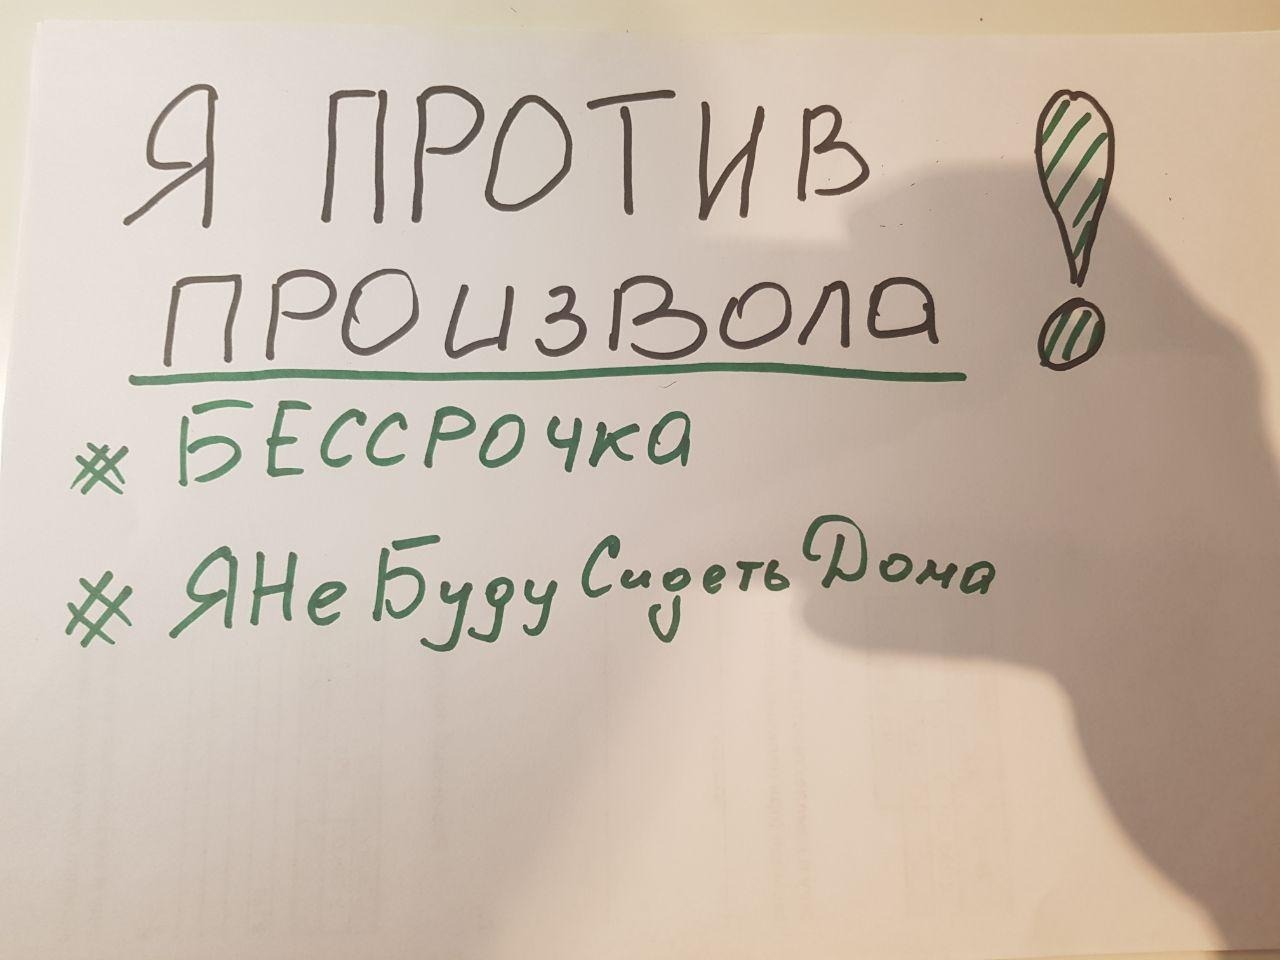 Я ПРОТИВ
ПРОИЗВОЛА!
# БЕССРОЧКА
# ЯНеБудуСидетьДома